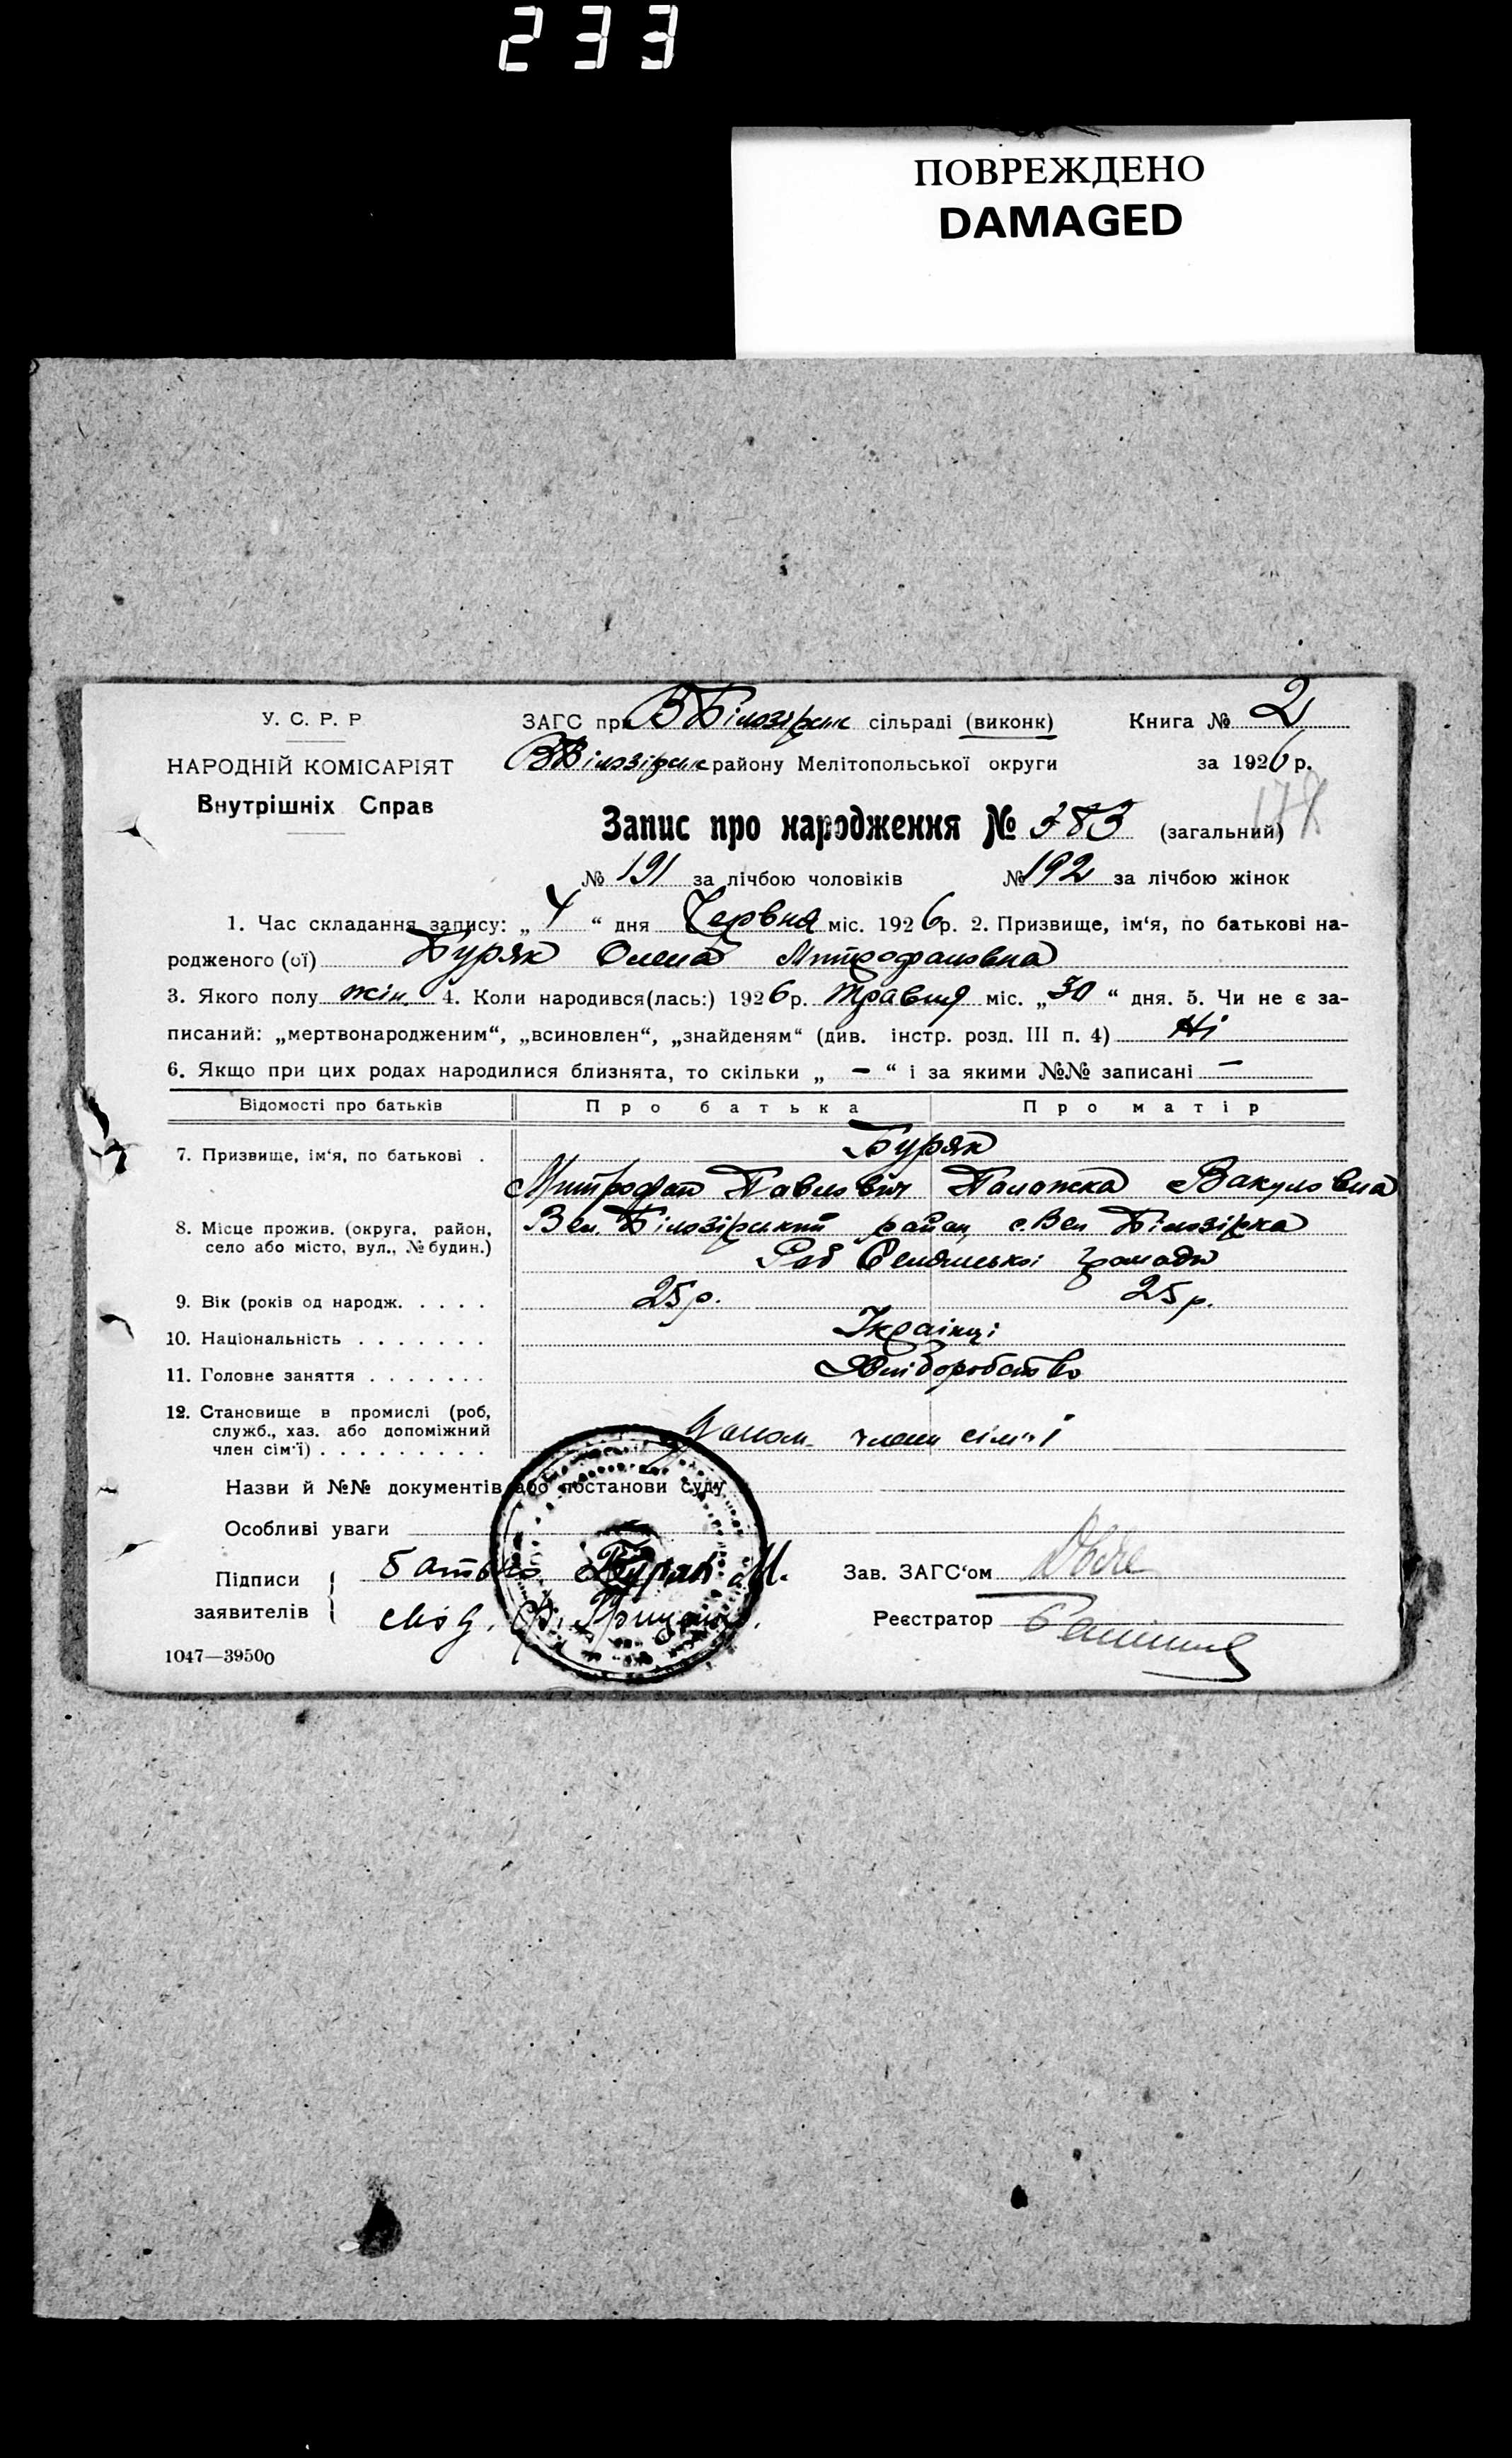 233
ПОВРЕЖДЕНО
DAMAGED
У. С. Р. Р
ЗАГС при В Білозірськ сільраді (виконк)
Книга № 2
НАРОДНІЙ КОМІСАРІЯТ
ВБілозірськ району Мелітопольської округи
за 1926 р.
Внутрішніх Справ
Запис про народження № 383 (загальний)
№ 191 за лічбою чоловіків № 192 за лічбою жінок
1. Час складання запису: „ 4 “ дня Червня міс. 1926р. 2. Призвище, ім‘я, по батькові на-
родженого (ої) Буряк Олена Митрофановна
3. Якого полу жін. 4. Коли народився(лась:) 1926р. Травня міс. „30 “ дня. 5. Чи не є за-
писаний: „мертвонародженим“, „всиновлен“, „знайденям“ (див. інстр. розд. III п. 4) Ні
6. Якщо при цих родах народилися близнята, то скільки „ – “ і за якими №№ записані –
Відомості про батьків Про батька Про матір
7. Призвище, ім‘я, по батькові . Буряк
Митрофан Павлович Палажка Вакуловна
8. Місце прожив. (округа, район, Вел. Білозірський район, с. Вел Білозірка
село або місто, вул., № будин.)
громади
9. Вік (років од народж. . . . . 25р. 25р.
10. Національність . . . . . . . Українці
11. Головне заняття . . . . . . . Хліборобство
12. Становище в промислі (роб,
служб., хаз. або допоміжний
член сім‘ї) . . . . . . . . . члени сім'ї
Назви й №№ документів або постанови суду
Особливі уваги
Підписи батько Буряк М.
заявителів
Зав. ЗАГС‘ом
Реєстратор
1047—39500